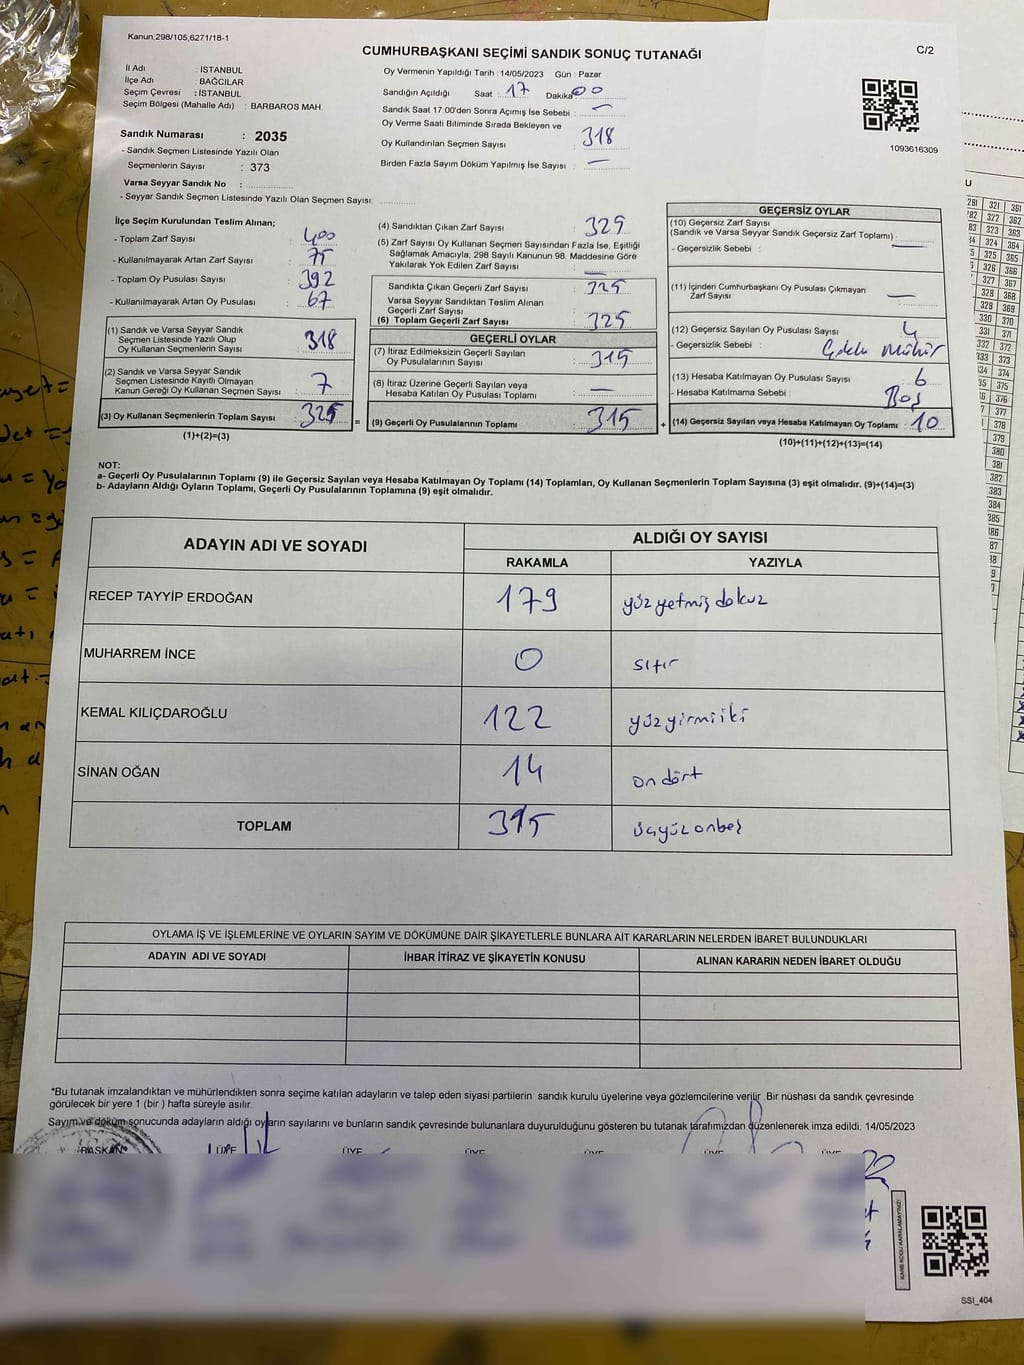 Kanun,298/105,6271/18-1
CUMHURBAŞKANI SEÇİMİ SANDIK SONUÇ TUTANAĞI
C/2
İl Adı : İSTANBUL
İlçe Adı : BAĞCILAR
Seçim Çevresi : İSTANBUL
Seçim Bölgesi (Mahalle Adı) : BARBAROS MAH.
Oy Vermenin Yapıldığı Tarih : 14/05/2023 Gün : Pazar
Sandığın Açıldığı Saat : 17 Dakika 00
Sandık Saat 17.00'den Sonra Açımış İse Sebebi : —
Oy Verme Saati Bitiminde Sırada Bekleyen ve
Oy Kullandırılan Seçmen Sayısı : 318
Birden Fazla Sayım Döküm Yapılmış İse Sayısı : —
1093616309
Sandık Numarası : 2035
- Sandık Seçmen Listesinde Yazılı Olan
Seçmenlerin Sayısı : 373
Varsa Seyyar Sandık No :
- Seyyar Sandık Seçmen Listesinde Yazılı Olan Seçmen Sayısı:
İlçe Seçim Kurulundan Teslim Alınan;
- Toplam Zarf Sayısı : 400
- Kullanılmayarak Artan Zarf Sayısı : 75
- Toplam Oy Pusulası Sayısı : 392
- Kullanılmayarak Artan Oy Pusulası : 67
(1) Sandık ve Varsa Seyyar Sandık
Seçmen Listesinde Yazılı Olup
Oy Kullanan Seçmenlerin Sayısı : 318
(2) Sandık ve Varsa Seyyar Sandık
Seçmen Listesinde Kayıtlı Olmayan
Kanun Gereği Oy Kullanan Seçmen Sayısı : 7
(3) Oy Kullanan Seçmenlerin Toplam Sayısı : 325 =
(1)+(2)=(3)
(4) Sandıktan Çıkan Zarf Sayısı : 325
(5) Zarf Sayısı Oy Kullanan Seçmen Sayısından Fazla İse, Eşitliği
Sağlamak Amacıyla; 298 Sayılı Kanunun 98. Maddesine Göre
Yakılarak Yok Edilen Zarf Sayısı : —
Sandıkta Çıkan Geçerli Zarf Sayısı : 325
Varsa Seyyar Sandıktan Teslim Alınan
Geçerli Zarf Sayısı :
(6) Toplam Geçerli Zarf Sayısı : 325
GEÇERLİ OYLAR
(7) İtiraz Edilmeksizin Geçerli Sayılan
Oy Pusulalarının Sayısı : 315
(8) İtiraz Üzerine Geçerli Sayılan veya
Hesaba Katılan Oy Pusulası Toplamı : —
(9) Geçerli Oy Pusulalarının Toplamı : 315 +
GEÇERSİZ OYLAR
(10) Geçersiz Zarf Sayısı
(Sandık ve Varsa Seyyar Sandık Geçersiz Zarf Toplamı) :
- Geçersizlik Sebebi : —
(11) İçinden Cumhurbaşkanı Oy Pusulası Çıkmayan
Zarf Sayısı : —
(12) Geçersiz Sayılan Oy Pusulası Sayısı : 4
- Geçersizlik Sebebi : Çoklu Mühür
(13) Hesaba Katılmayan Oy Pusulası Sayısı : 6
- Hesaba Katılmama Sebebi : Boş
(14) Geçersiz Sayılan veya Hesaba Katılmayan Oy Toplamı : 10
(10)+(11)+(12)+(13)=(14)
NOT:
a- Geçerli Oy Pusulalarının Toplamı (9) ile Geçersiz Sayılan veya Hesaba Katılmayan Oy Toplamı (14) Toplamları, Oy Kullanan Seçmenlerin Toplam Sayısına (3) eşit olmalıdır. (9)+(14)=(3)
b- Adayların Aldığı Oyların Toplamı, Geçerli Oy Pusulalarının Toplamına (9) eşit olmalıdır.
ADAYIN ADI VE SOYADI
ALDIĞI OY SAYISI
RAKAMLA YAZIYLA
RECEP TAYYİP ERDOĞAN 179 yüz yetmiş dokuz
MUHARREM İNCE 0 sıfır
KEMAL KILIÇDAROĞLU 122 yüz yirmi iki
SİNAN OĞAN 14 on dört
TOPLAM 315 üçyüz onbeş
OYLAMA İŞ VE İŞLEMLERİNE VE OYLARIN SAYIM VE DÖKÜMÜNE DAİR ŞİKAYETLERLE BUNLARA AİT KARARLARIN NELERDEN İBARET BULUNDUKLARI
ADAYIN ADI VE SOYADI İHBAR İTİRAZ VE ŞİKAYETİN KONUSU ALINAN KARARIN NEDEN İBARET OLDUĞU
*Bu tutanak imzalandıktan ve mühürlendikten sonra seçime katılan adayların ve talep eden siyasi partilerin sandık kurulu üyelerine veya gözlemcilerine verilir .Bir nüshası da sandık çevresinde
görülecek bir yere 1 (bir ) hafta süreyle asılır.
Sayım ve döküm sonucunda adayların aldığı oyların sayılarını ve bunların sandık çevresinde bulunanlara duyurulduğunu gösteren bu tutanak tarafımızdan düzenlenerek imza edildi. 14/05/2023
BAŞKAN ÜYE ÜYE ÜYE ÜYE ÜYE ÜYE
KARE KODU KARALAMAYINIZ!
SSI_404